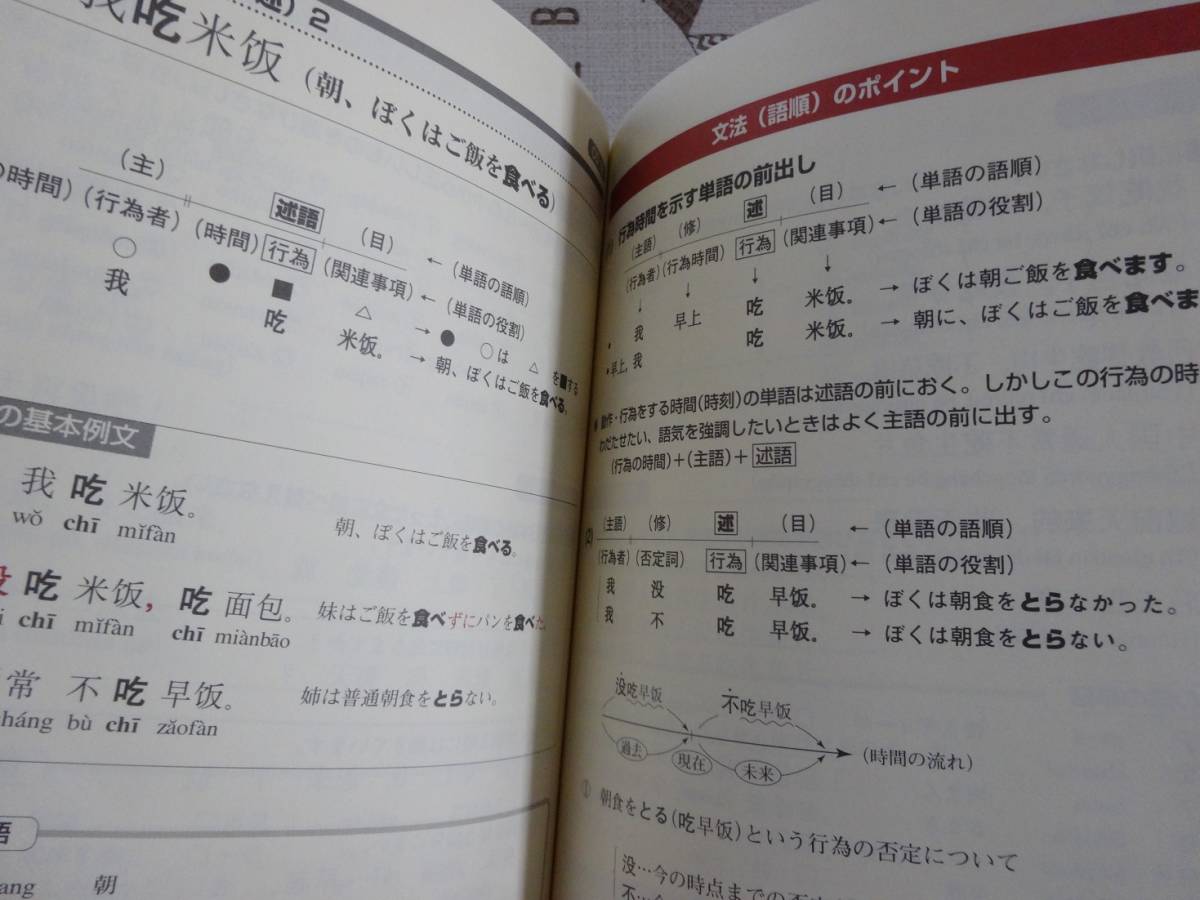 2
我吃米饭（朝、ぼくはご飯を食べる）
（主） 述語 （目） ←（単語の語順）
の時間）（行為者）（時間） 行為 （関連事項）←（単語の役割）
○ ● ■ △ → ● ○は △ を■する
我 吃 米饭。 → 朝、ぼくはご飯を食べる。
の基本例文
我 吃 米饭。 朝、ぼくはご飯を食べる。
wǒ chī mǐfàn
没 吃 米饭, 吃 面包。 妹はご飯を食べずにパンを食べた。
chī mǐfàn chī miànbāo
常 不 吃 早饭。 姉は普通朝食をとらない。
cháng bù chī zǎofàn
語
朝
文法（語順）のポイント
行為時間を示す単語の前出し
（主語） （修） 述 （目） ←（単語の語順）
（行為者）（行為時間） 行為 （関連事項）←（単語の役割）
↓ ↓ ↓ ↓
• 我 早上 吃 米饭。 → ぼくは朝ご飯を食べます。
•早上, 我 吃 米饭。 → 朝に、ぼくはご飯を食べま
動作・行為をする時間（時刻）の単語は述語の前におく。しかしこの行為の時
わだたせたい、語気を強調したいときはよく主語の前に出す。
（行為の時間）+（主語）+ 述語
(2) （主語） （修） 述 （目） ←（単語の語順）
（行為者）（否定詞） 行為 （関連事項）←（単語の役割）
我 没 吃 早饭。 → ぼくは朝食をとらなかった。
我 不 吃 早饭。 → ぼくは朝食をとらない。
没吃早饭 不吃早饭
過去 現在 未来 （時間の流れ）
① 朝食をとる（吃早饭）という行為の否定について
没…今の時点までの否
不…